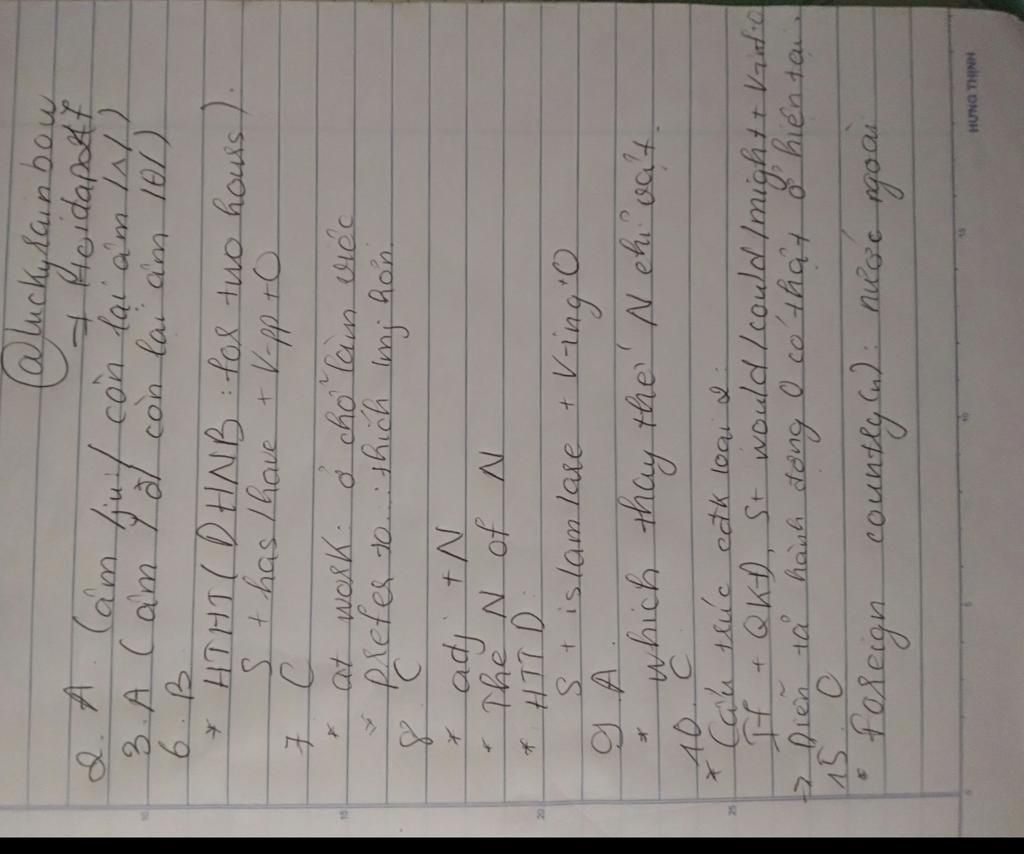 @luckyrainbow
→ Hoidap247
2. A (âm /ju:/ còn lại âm /ʌ/)
3. A (âm /ð/ còn lại âm /θ/)
6. B
* HTHT (DHNB: for two hours).
S + has/have + V-pp + O
7 C
* at work: ở chỗ làm việc
prefer to: thích hơn
8. C
* adj + N
* The N of N
* HTTD:
S + is/am/are + V-ing + O
9 A.
* which thay thế N chỉ vật.
10. C
* Cấu trúc câu loại 2:
If + QKĐ, S + would/could/might + V-inf + O
→ Diễn tả hành động 0 có thật ở hiện tại.
15. C
* foreign country(n): nước ngoài
HƯNG THỊNH
10
15
20
25
0
5
10
15